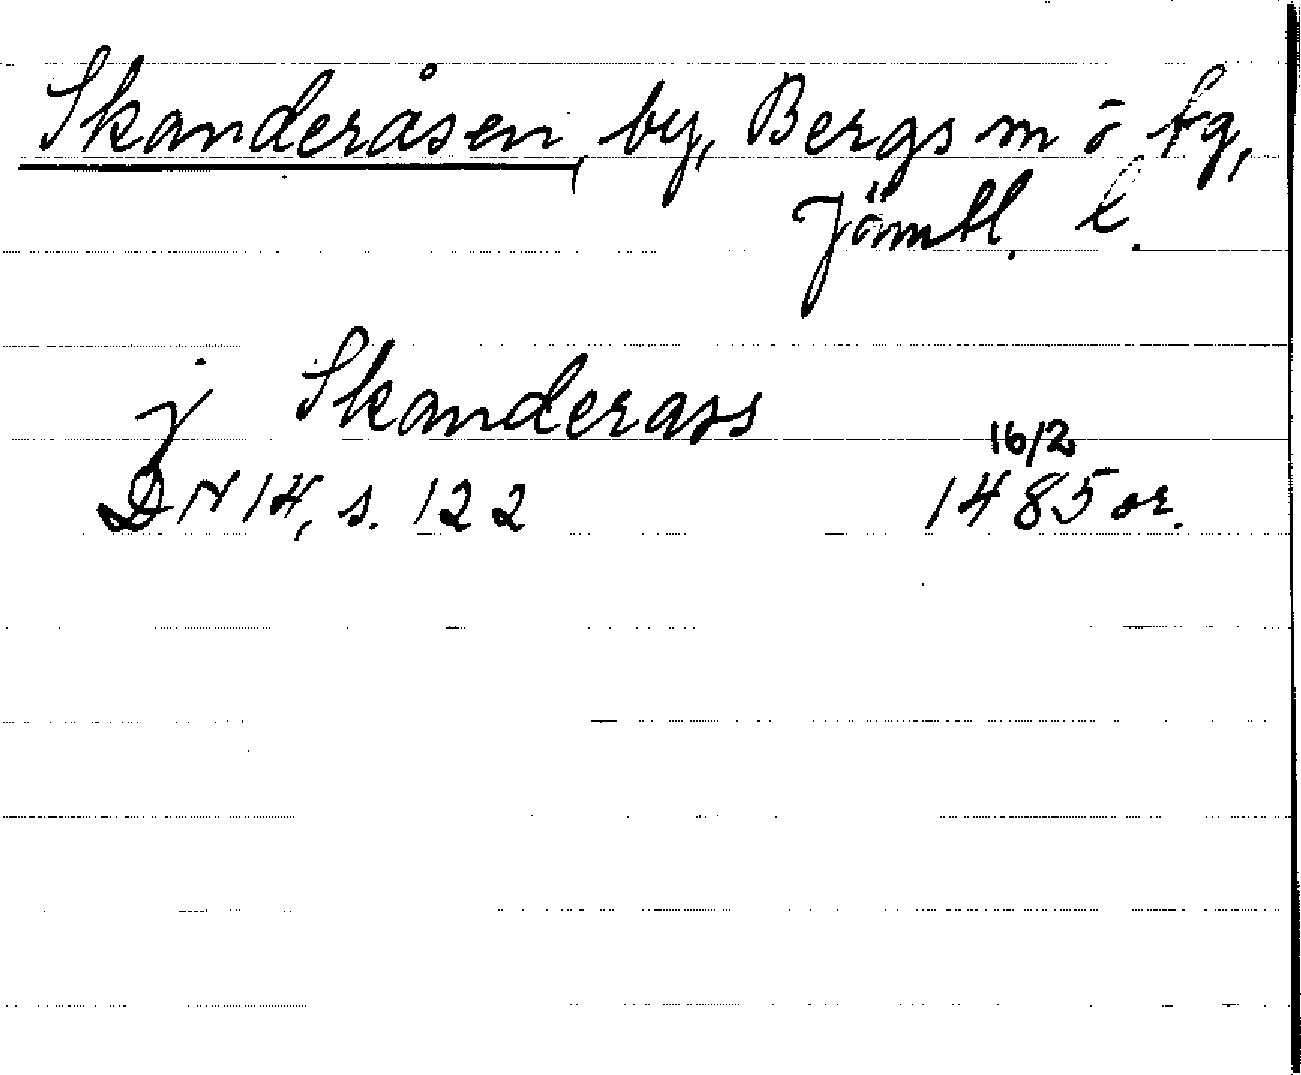 Skanderåsen, by, Bergs sn o tg,
Jämtl. l.
j Skanderass
16/2
DN 14, s. 122 1485 or.